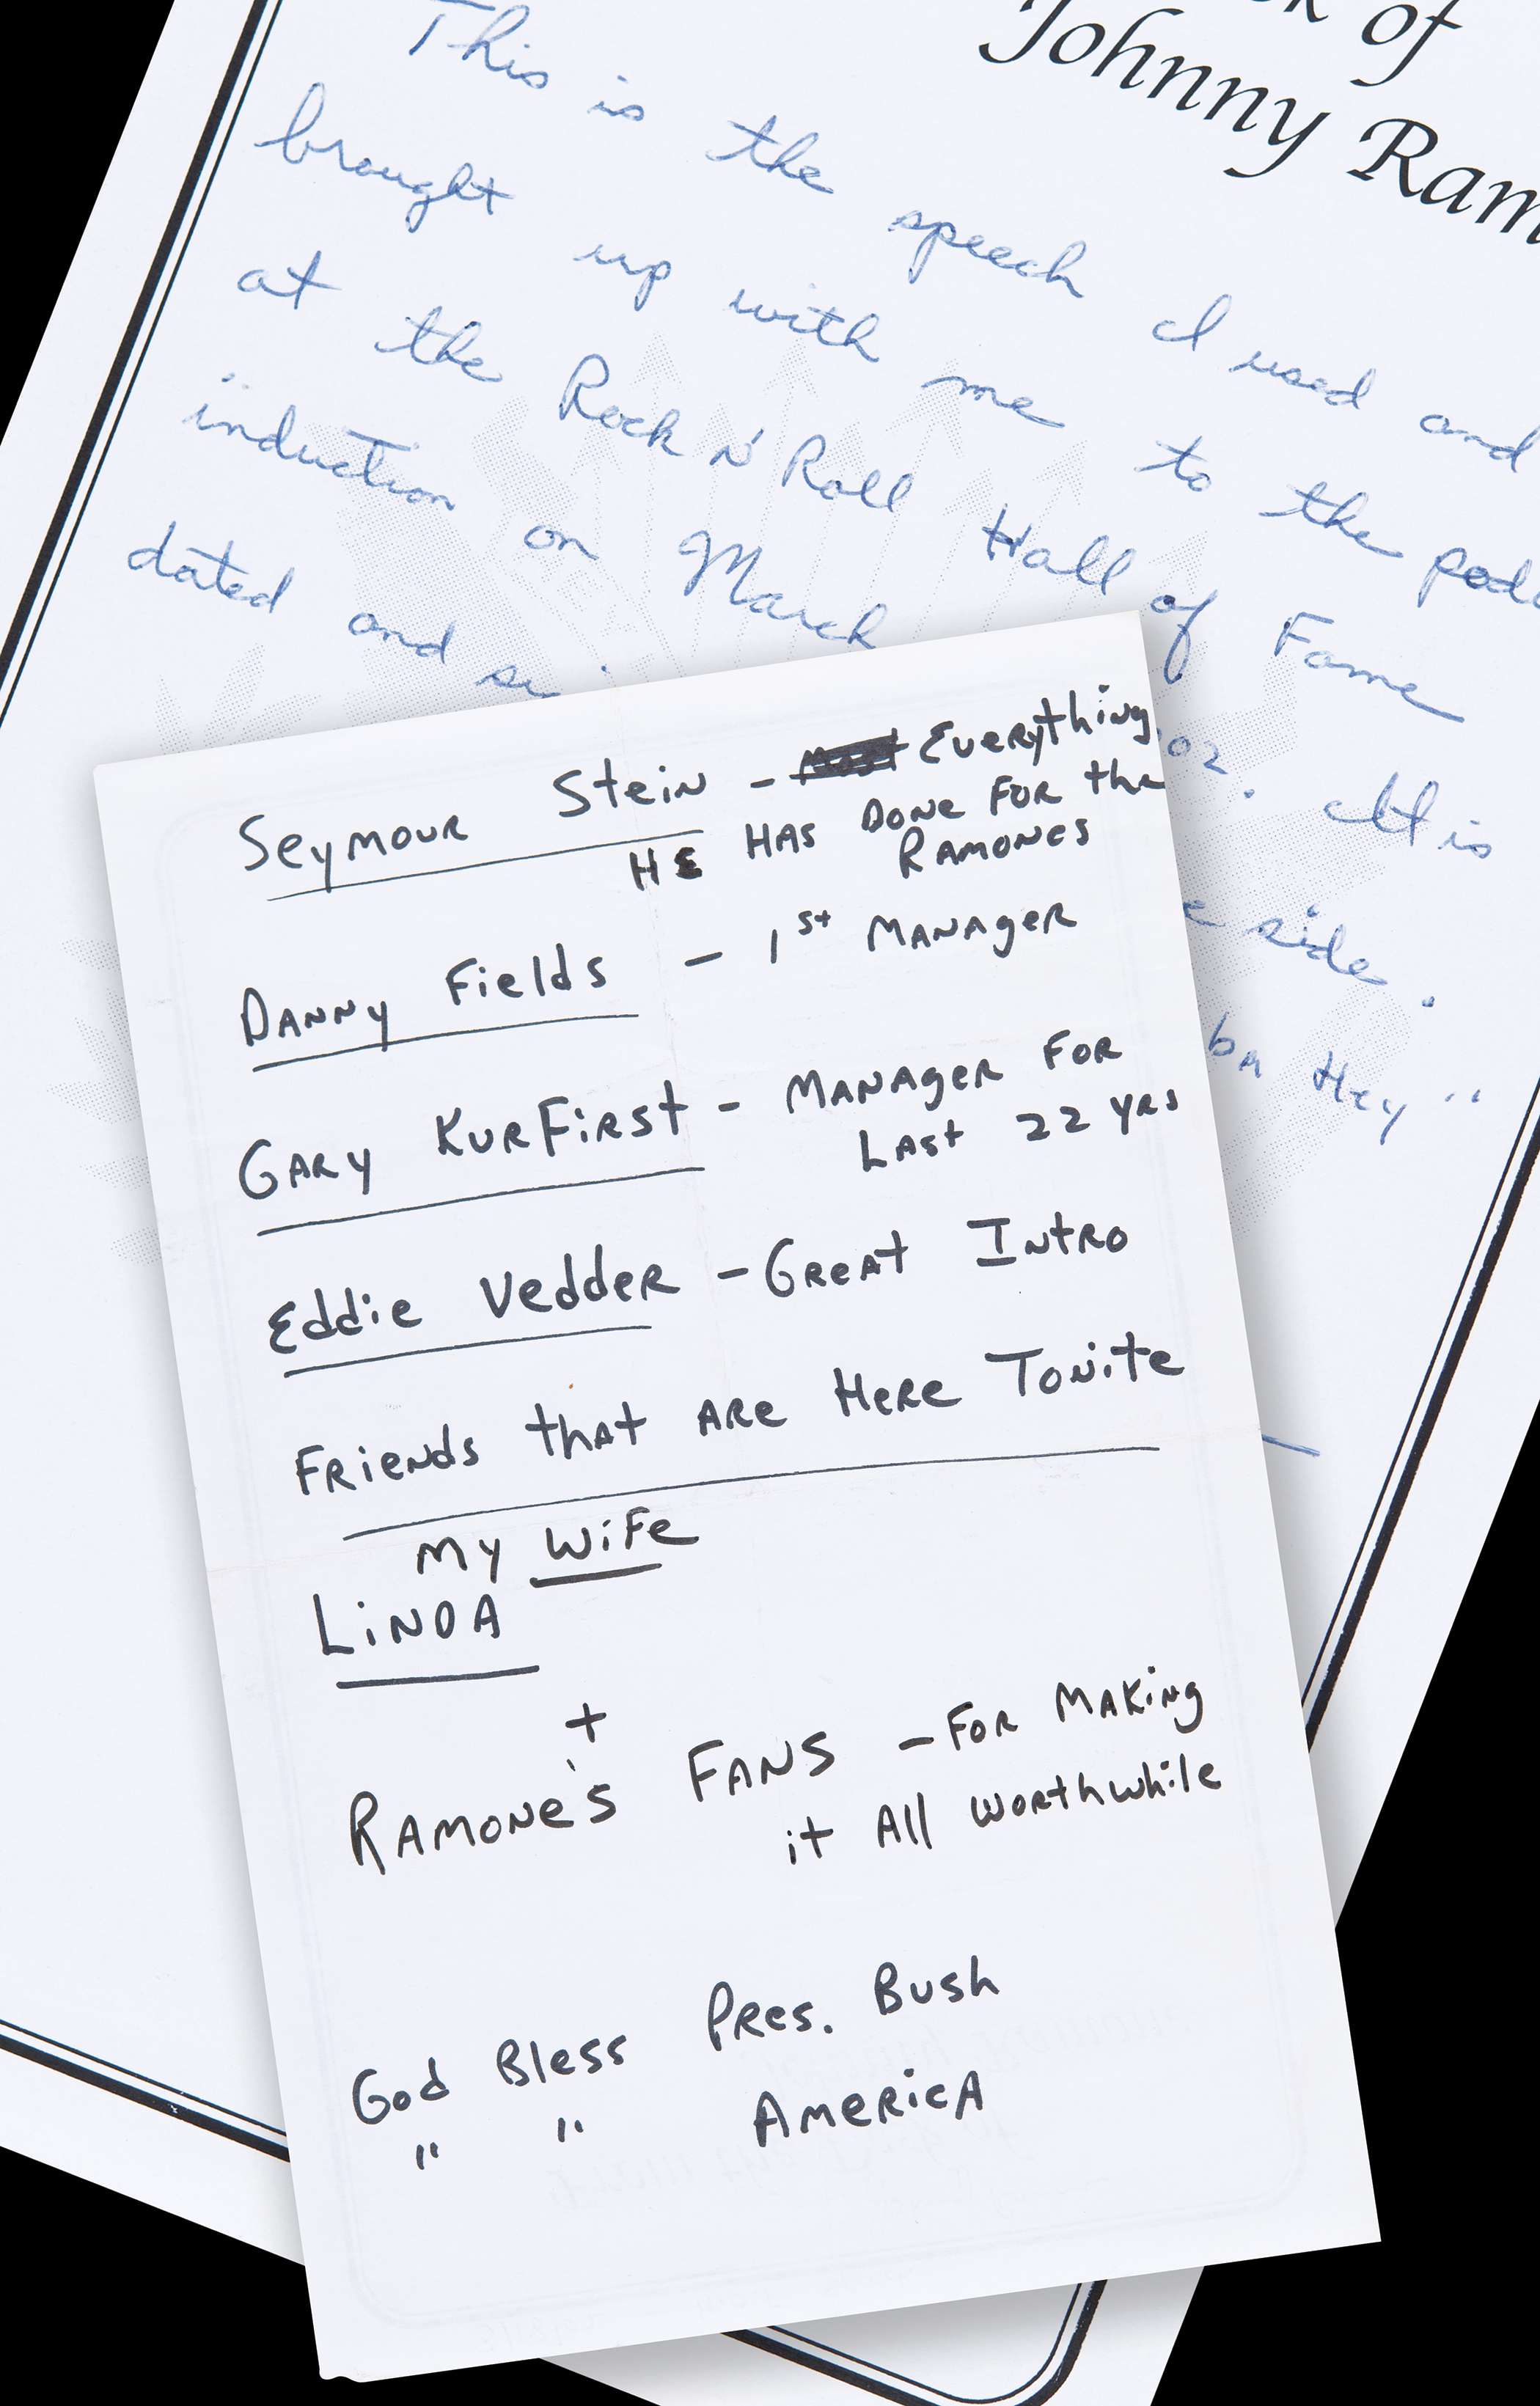 of
Johnny
This is the speech I used and
brought up with me to the
at the Rock N' Roll Hall of Fame
induction on March 02. It is
dated and side.
Hey"
Seymour Stein - Everything
HE HAS DONE FOR the
RAMONES
DANNY Fields - 1st MANAGER
GARY KURFIRST - MANAGER FOR
LAST 22 YRS
Eddie VeddeR - GREAT INTRO
FRiends thAT ARe HeRe TONite
My WiFe
LiNDA
+
RAMONE'S FANS - FOR MAKiNg
it All WORthwhile
God Bless Pres. Bush
" " AMERicA